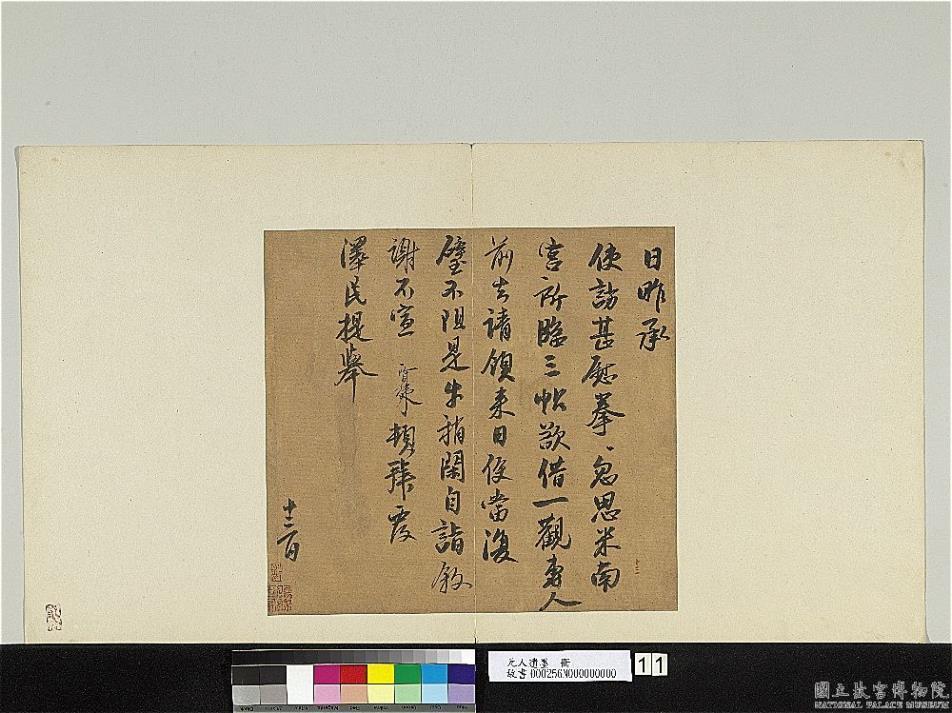 日昨承
使訪甚慰拳〻忽思米南
宮所臨三帖欲借一觀專人
前去請領来日便當復
璧不阻是幸稍閑自詣叙
謝不宣 頓拜覆
澤民提舉
十二日
元人遺墨
故書000256N000000000
11
國立故宮博物院
NATIONAL PALACE MUSEUM